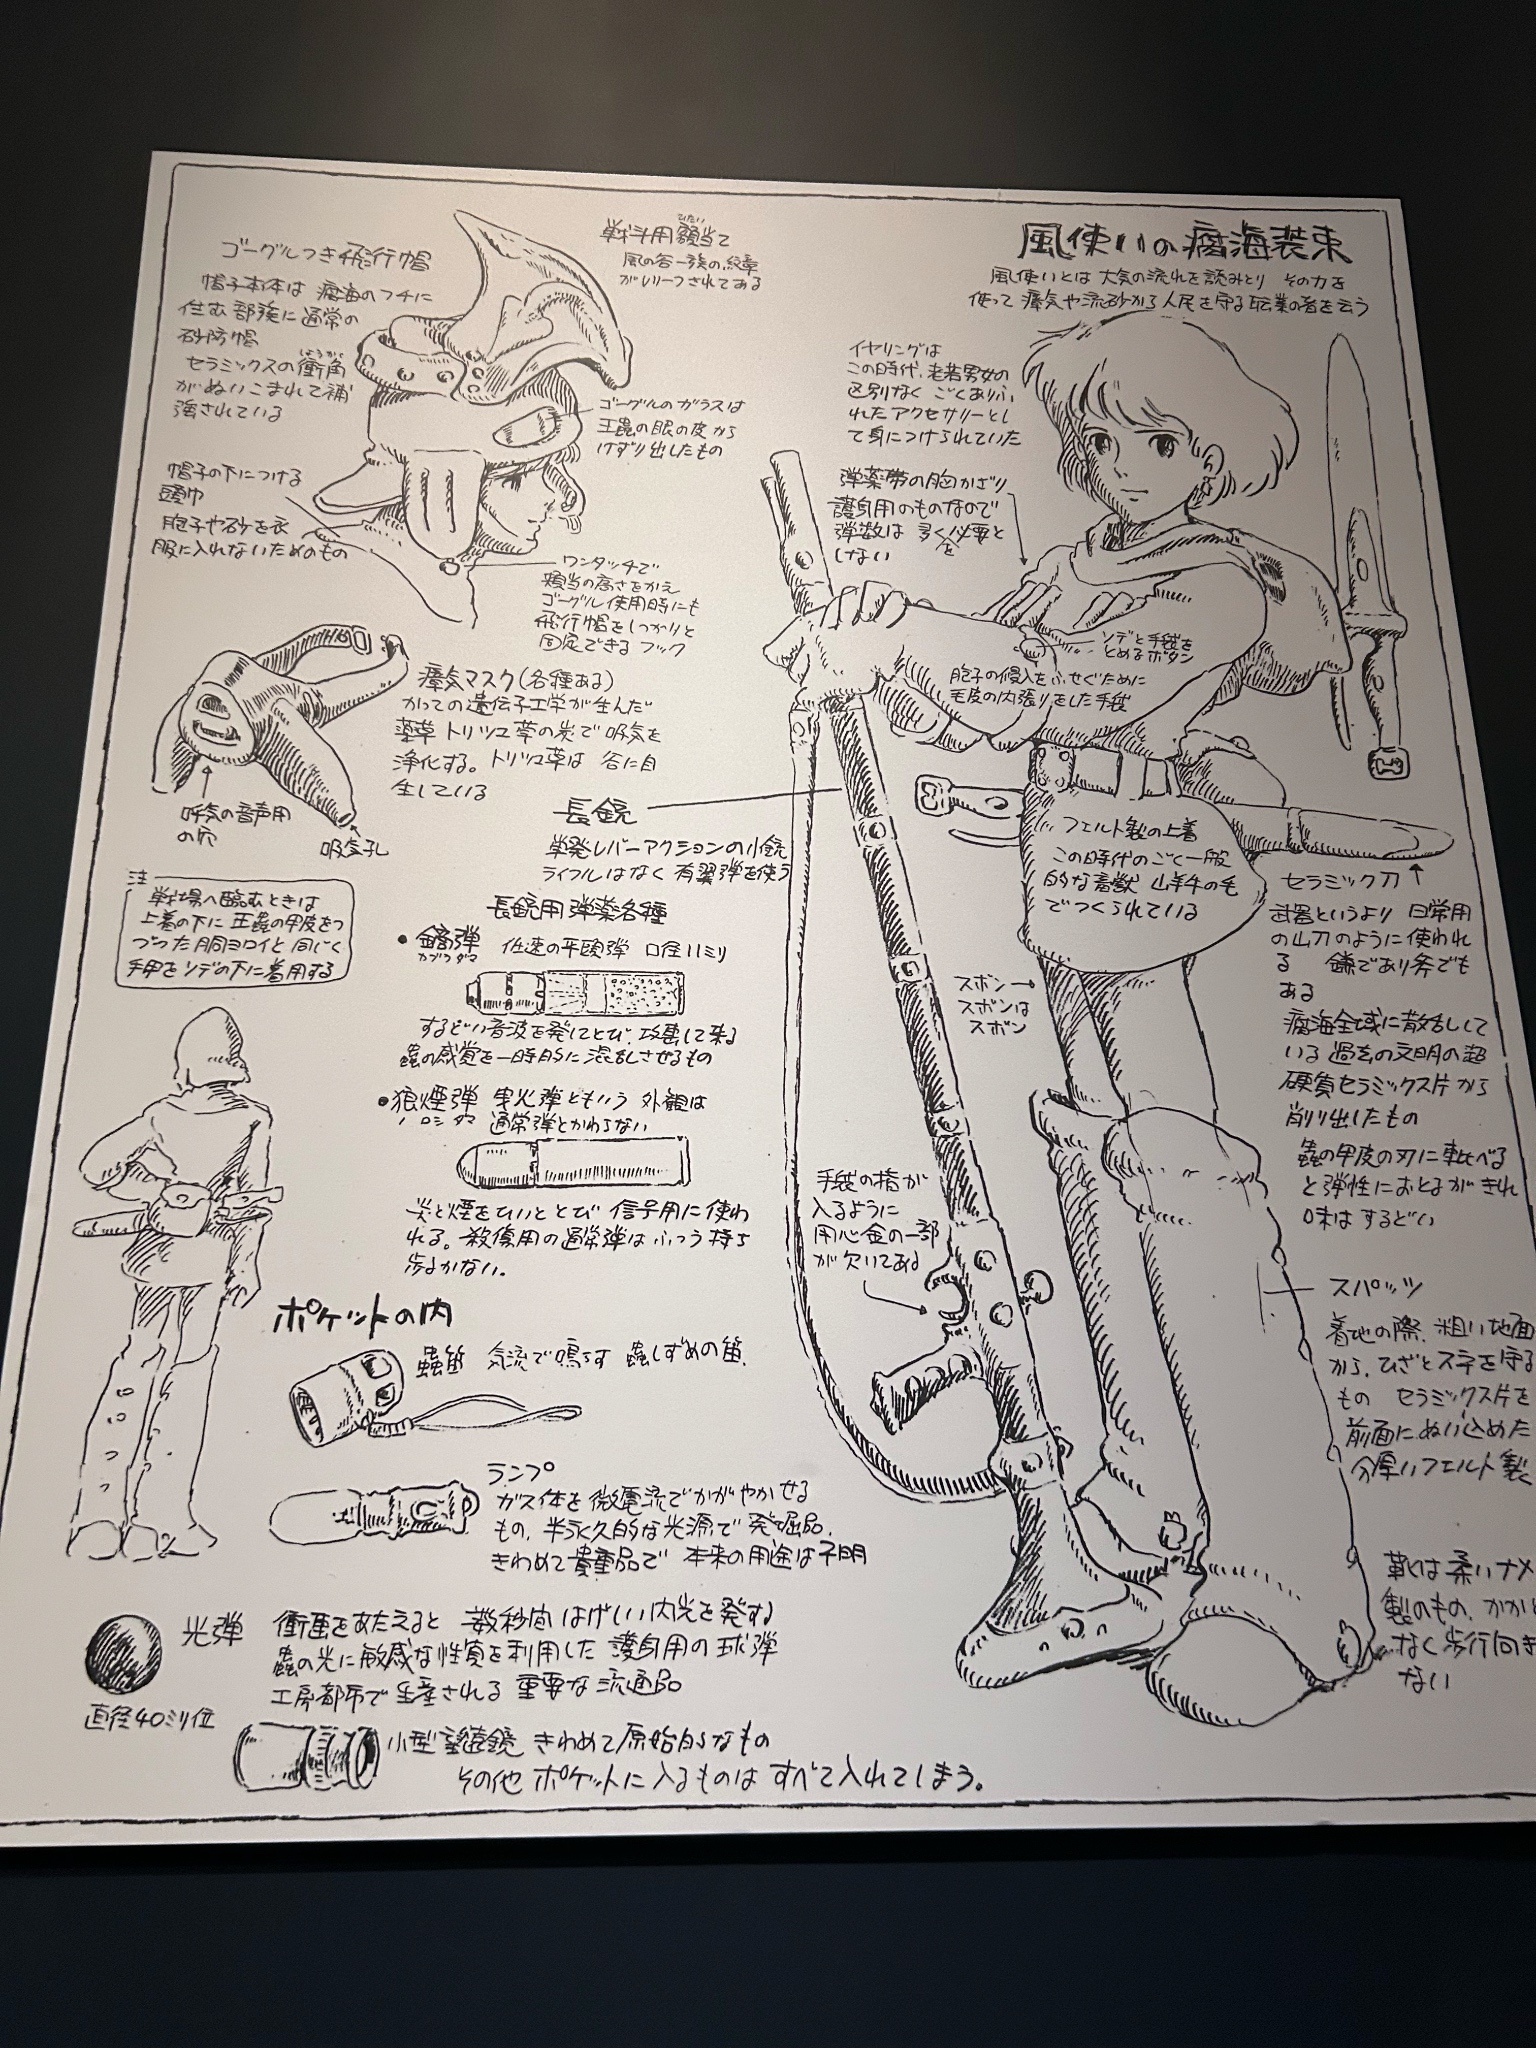 風使いの腐海装束
風使いとは 大気の流れを読みとり その力を
使って 瘴気や流砂から人民を守る職業の者を云う
ゴーグルつき飛行帽
帽子本体は 腐海のフチに
住む部族に通常の
砂防帽
セラミックスの衝角
しょうかく
がぬいこまれて補
強されている
戦斗用額当て
ひたい
風の谷一族の紋章
がレリーフされてある
ゴーグルのガラスは
王蟲の眼の皮から
けずり出したもの
帽子の下につける
頭巾
胞子や砂を衣
服に入れないためのもの
ワンタッチで
頬当の高さをかえ
ゴーグル使用時にも
飛行帽をしっかりと
固定できるフック
イヤリングは
この時代、老若男女の
区別なく ごくありふ
れたアクセサリーとし
て身につけられていた
弾薬帯の胸かざり
護身用のものなので
弾数は 多くを必要と
しない
ソデと手袋を
とめるボタン
胞子の侵入をふせぐために
毛皮の内張りをした手袋
瘴気マスク(各種ある)
かつての遺伝子工学が生んだ
薬草 トリツユ草の炭で吸気を
浄化する。トリツユ草は 谷に自
生している
呼気の音声用
の穴
吸気孔
長銃
単発レバーアクションの小銃
ライフルはなく 有翼弾を使う
注
戦場へ臨むときは
上着の下に 王蟲の甲皮をつ
づった胴ヨロイと 同じく
手甲をソデの下に着用する
長銃用 弾薬各種
●鏑弾 低速の平頭弾 口径11ミリ
カブラダマ
するどい音波を発してとび、攻撃して来る
蟲の感覚を一時的に混乱させるもの
●狼煙弾 曳火弾ともいう 外観は
ノロシダマ 通常弾とかわらない
炎と煙をひいてとび 信号用に使わ
れる。殺傷用の通常弾はふつう持ち
歩るかない。
フェルト製の上着
この時代のごく一般
的な畜獣 山羊牛の毛
でつくられている
セラミック刀
武器というより 日常用
の山刀のように使われ
る 鎌であり斧でも
ある
腐海全域に散乱して
いる 過去の文明の超
硬質セラミックス片から
削り出したもの
蟲の甲皮の刃に較べる
と弾性におとるがきれ
味はするどい
ズボン→
ズボンは
ズボン
手袋の指が
入るように
用心金の一部
が欠いてある
スパッツ
着地の際、粗い地面
から、ひざとスネを守る
もの セラミックス片を
前面にぬい込めた
分厚いフェルト製
靴は柔いナメ
製のもの、かかと
なく歩行向き
ない
ポケットの内
蟲笛 気流で鳴らす 蟲しずめの笛、
ランプ
ガス体を微電流でかがやかせる
もの、半永久的な光源で 発掘品、
きわめて貴重品で 本来の用途は不明
光弾 衝撃をあたえると 数秒間 はげしい閃光を発する
蟲の光に敏感な性質を利用した 護身用の球弾
工房都市で生産される 重要な流通品
直径40ミリ位
小型望遠鏡 きわめて原始的なもの
その他 ポケットに入るものは すべて入れてしまう。